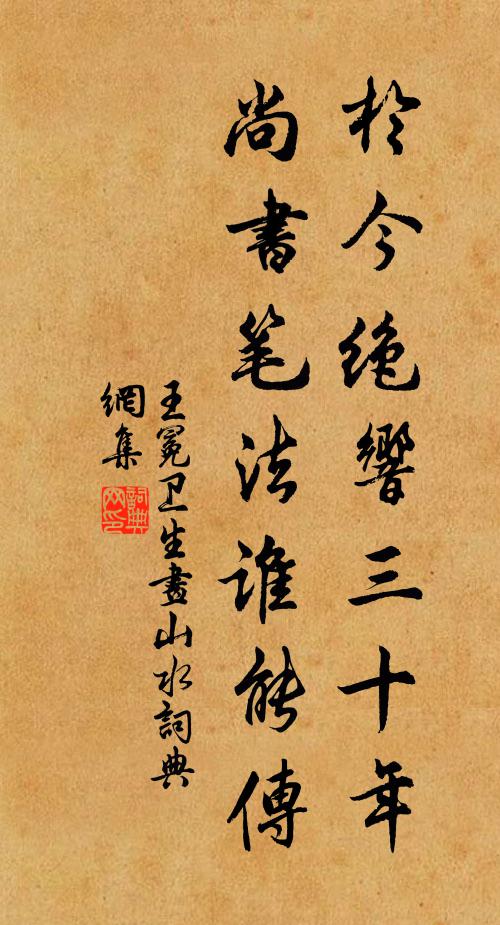 於今绝響三十年
尚書笔法誰能傳
王冕卫生畫山水詞典
網集
詞典
网印